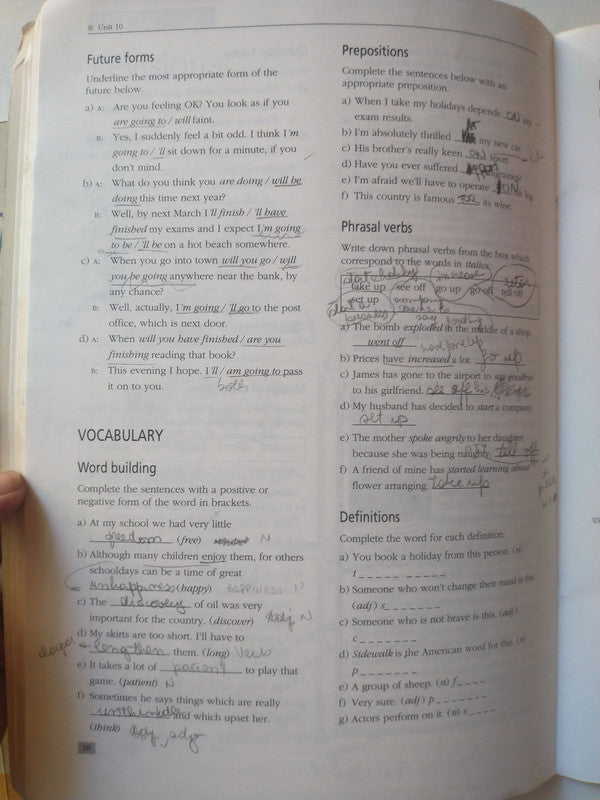 Unit 10
Future forms
Underline the most appropriate form of the
future below.
a) A: Are you feeling OK? You look as if you
are going to / will faint.
B: Yes, I suddenly feel a bit odd. I think I'm
going to / 'll sit down for a minute, if you
don't mind.
b) A: What do you think you are doing / will be
doing this time next year?
B: Well, by next March I'll finish / 'll have
finished my exams and I expect I'm going
to be / 'll be on a hot beach somewhere.
c) A: When you go into town will you go / will
you be going anywhere near the bank, by
any chance?
B: Well, actually, I'm going / 'll go to the post
office, which is next door.
d) A: When will you have finished / are you
finishing reading that book?
B: This evening I hope. I'll / am going to pass
it on to you.
both
VOCABULARY
Word building
Complete the sentences with a positive or
negative form of the word in brackets.
a) At my school we had very little
freedom (free) N
b) Although many children enjoy them, for others
schooldays can be a time of great
unhappiness (happy) HAPPINESS N
c) The discovery of oil was very
important for the country. (discover) N
d) My skirts are too short. I'll have to
lengthen them. (long) Verb
e) It takes a lot of to play that
game. (patient) N
f) Sometimes he says things which are really
and which upset her.
(think) adj
38
Prepositions
Complete the sentences below with an
appropriate preposition.
a) When I take my holidays depends ON my
exam results.
b) I'm absolutely thrilled my new car.
c) His brother's really keen ON sport.
d) Have you ever suffered migraine?
e) I'm afraid we'll have to operate ON his leg.
f) This country is famous its wine.
Phrasal verbs
Write down phrasal verbs from the box which
correspond to the words in italics.
start a hobby increase
take up see off go up go off tell off
set up
start a business say goodbye
a) The bomb exploded in the middle of a shop.
went off
have gone up
b) Prices have increased a lot. go up
c) James has gone to the airport to say goodbye
to his girlfriend. see off his
d) My husband has decided to start a company.
set up
e) The mother spoke angrily to her daughter,
because she was being naughty. tell off
f) A friend of mine has started learning about
flower arranging. take up
Definitions
Complete the word for each definition.
a) You book a holiday from this person. (n)
t_____ _____
b) Someone who won't change their mind is this.
(adj) s_______
c) Someone who is not brave is this. (adj)
c_______
d) Sidewalk is the American word for this. (n)
p_______
e) A group of sheep. (n) f____
f) Very sure. (adj) p_______
g) Actors perform on it. (n) s____